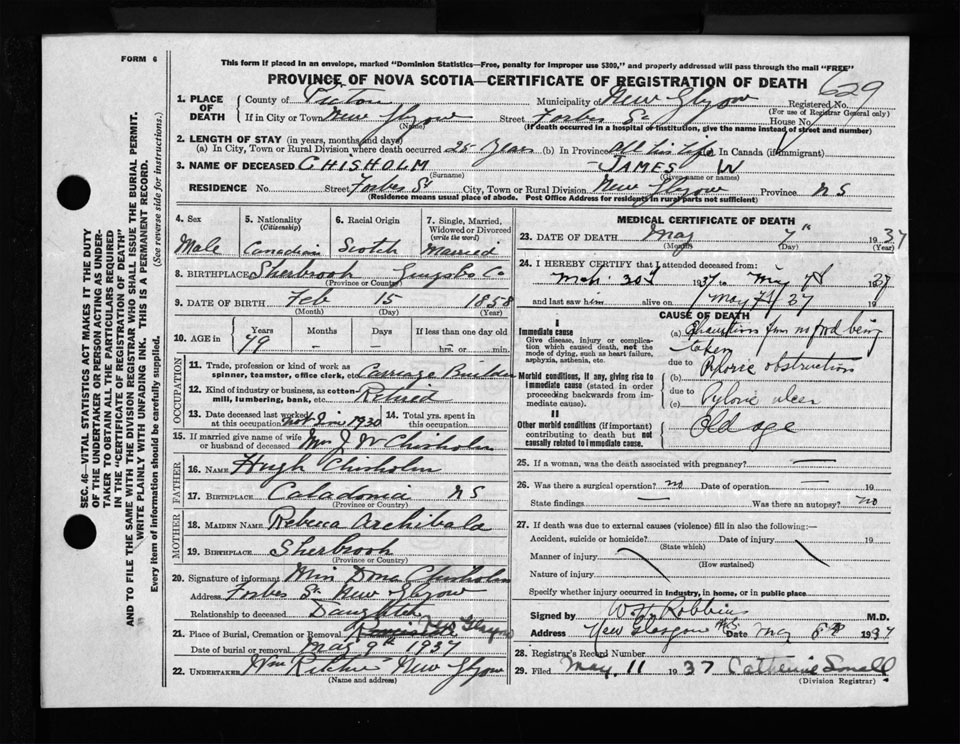 FORM 6
This form if placed in an envelope, marked "Dominion Statistics—Free, penalty for improper use $300," and properly addressed will pass through the mail "FREE"
PROVINCE OF NOVA SCOTIA—CERTIFICATE OF REGISTRATION OF DEATH
629
1. PLACE OF DEATH County of Pictou Municipality of New Glasgow Registered No.
(For use of Registrar General only)
If in City or Town New Glasgow (Name) Street Forbes St House No.
(If death occurred in a hospital or institution, give the name instead of street and number)
2. LENGTH OF STAY (in years, months and days)
(a) In City, Town or Rural Division where death occurred 25 Years (b) In Province All his life In Canada (if immigrant)
3. NAME OF DECEASED CHISHOLM JAMES W
(Surname) (Given name or names)
RESIDENCE No. Street Forbes St City, Town or Rural Division New Glasgow Province N S
(Residence means usual place of abode. Post Office Address for residents in rural parts not sufficient)
4. Sex Male
5. Nationality (Citizenship) Canadian
6. Racial Origin Scotch
7. Single, Married, Widowed or Divorced (write the word) Married
8. BIRTHPLACE Sherbrook Guysbo Co
(Province or Country)
9. DATE OF BIRTH Feb 15 1858
(Month) (Day) (Year)
10. AGE in Years 79 Months – Days – If less than one day old hrs. or min.
OCCUPATION
11. Trade, profession or kind of work as spinner, teamster, office clerk, etc. Carriage Builder
12. Kind of industry or business, as cotton-mill, lumbering, bank, etc. Retired
13. Date deceased last worked at this occupation not since 1930
14. Total yrs. spent in this occupation
15. If married give name of wife or husband of deceased Mrs J. W Chisholm
FATHER
16. NAME Hugh Chisholm
17. BIRTHPLACE Caladonia N S
(Province or Country)
MOTHER
18. MAIDEN NAME Rebecca Archibald
19. BIRTHPLACE Sherbrook
(Province or Country)
20. Signature of informant Miss Dona Chisholm
Address Forbes St. New Glasgow
Relationship to deceased Daughter
21. Place of Burial, Cremation or Removal New Glasgow
Date of burial or removal May 9th 1937
22. UNDERTAKER Wm Ritchie New Glasgow
(Name and address)
MEDICAL CERTIFICATE OF DEATH
23. DATE OF DEATH May 7th 1937
(Month) (Day) (Year)
24. I HEREBY CERTIFY that I attended deceased from:
Mch. 30th 1937 to May 7th 1937
and last saw him alive on May 7th 37 19
CAUSE OF DEATH
I
Immediate cause
Give disease, injury or complication which caused death, not the mode of dying, such as heart failure, asphyxia, asthenia, etc.
(a) Exhaustion from no food being taken
due to
Morbid conditions, if any, giving rise to immediate cause (stated in order proceeding backwards from immediate cause).
(b) Pyloric obstruction
due to
(c) Pyloric ulcer
II
Other morbid conditions (if important) contributing to death but not causally related to immediate cause.
Old age
25. If a woman, was the death associated with pregnancy? —
26. Was there a surgical operation? no Date of operation — 19
State findings — Was there an autopsy? no
27. If death was due to external causes (violence) fill in also the following:—
Accident, suicide or homicide? Date of injury 19
(State which)
Manner of injury
(How sustained)
Nature of injury
Specify whether injury occurred in Industry, in home, or in public place
Signed by W H Robbins M.D.
Address New Glasgow N.S. Date May 8th 1937
28. Registrar's Record Number
29. Filed May 11 1937 Catherine Small
(Division Registrar)
SEC. 46—VITAL STATISTICS ACT MAKES IT THE DUTY
OF THE UNDERTAKER OR PERSON ACTING AS UNDER-
TAKER TO OBTAIN ALL THE PARTICULARS REQUIRED
IN THE "CERTIFICATE OF REGISTRATION OF DEATH"
AND TO FILE THE SAME WITH THE DIVISION REGISTRAR WHO SHALL ISSUE THE BURIAL PERMIT.
WRITE PLAINLY WITH UNFADING INK. THIS IS A PERMANENT RECORD.
Every item of information should be carefully supplied. (See reverse side for instructions.)